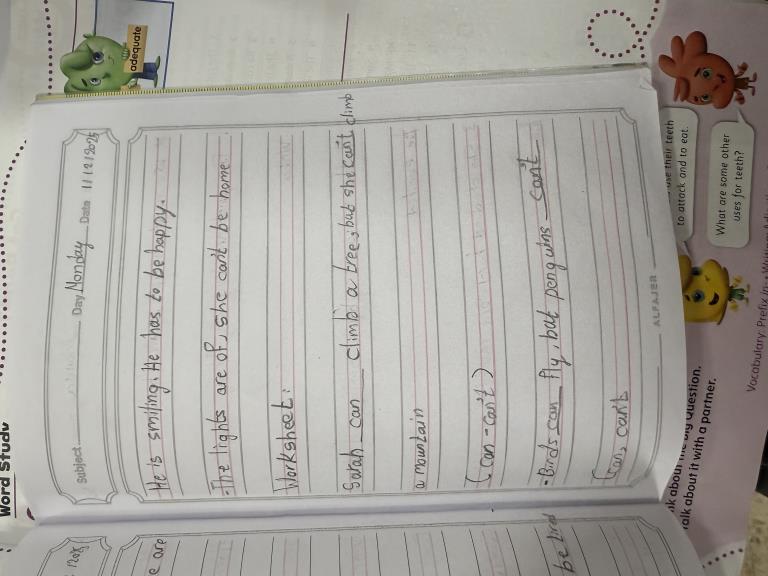 Subject Day Monday Date 1/12/2025
He is smiling. He has to be happy.
-The lights are of, she can't be home.
Worksheet:
Sarah can climb a tree, but she can't climb
a mountain
(can - can't)
-Birds can fly, but penguins can't
(can, can't
ALFAJER
adequate
Word Study
use their teeth
to attack and to eat.
What are some other
uses for teeth?
Vocabulary: Prefix in-
talk about it with a partner.
Big Question.
e are
be tired